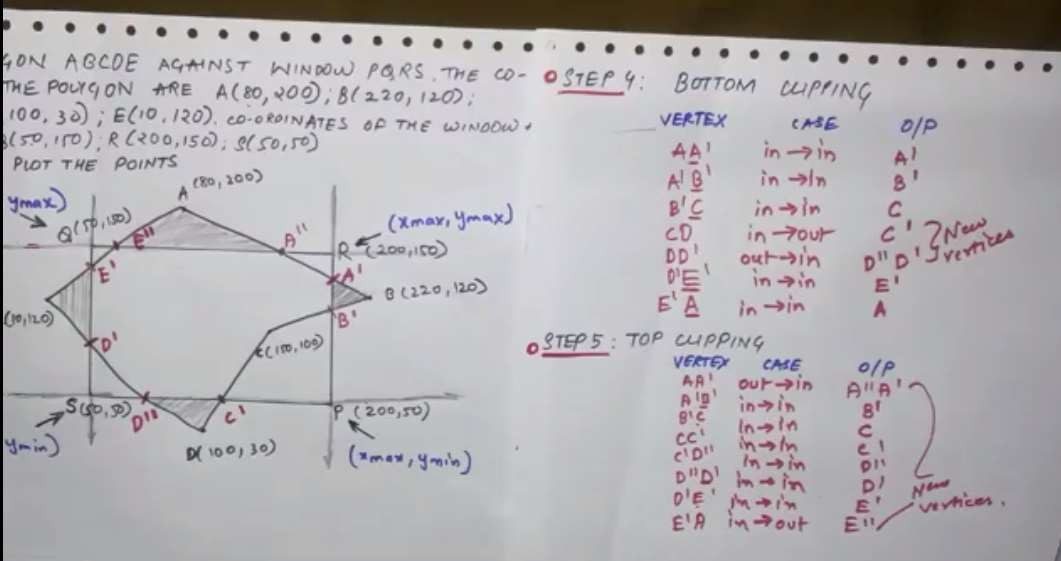 GON ABCDE AGAINST WINDOW PQRS. THE CO-
THE POLYGON ARE A(80,200); B(220,120);
100,30); E(10,120). CO-ORDINATES OF THE WINDOW
(50,150); R(200,150); S(50,50)
PLOT THE POINTS
ymax)
Q(50,150)
A (80,200)
(xmax, ymax)
E"
A"
R (200,150)
E'
A'
B (220,120)
(10,120)
B'
C(150,100)
D'
S(50,50)
D"
C'
P (200,50)
ymin)
D(100,30)
(xmax, ymin)
STEP 4: BOTTOM CLIPPING
VERTEX CASE O/P
AA' in→in A'
A'B' in→in B'
B'C in→in C
CD in→out C'
DD' out→in D" D'
New vertices
D'E' in→in E'
E'A in→in A
STEP 5: TOP CLIPPING
VERTEX CASE O/P
AA' out→in A"A'
A'B' in→in B'
B'C in→in C
CC' in→in C'
C'D" in→in D"
D"D' in→in D'
D'E' in→in E'
E'A in→out E"
New vertices.